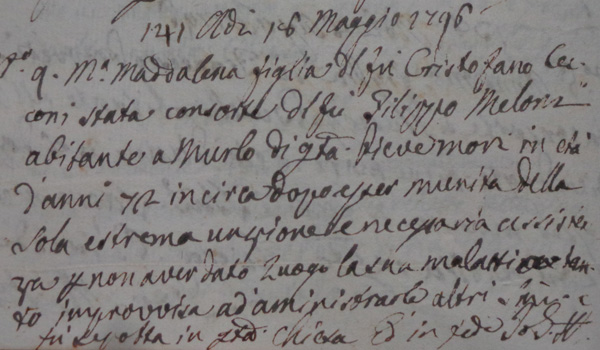 141 Adi 16 Maggio 1796
q. Mª Maddalena figlia del fu Cristofano Cec-
coni stata consorte del fu Filippo Meloni
abitante a Murlo di qta. Pieve morì in età
d'anni 72 in circa dopo esser munita della
sola estrema unzione e necessaria assisten
za p non aver dato luogo la sua malattia tan-
to improvvisa ad aministrarle altri
fu sepolta in qta Chiesa Ed in fede